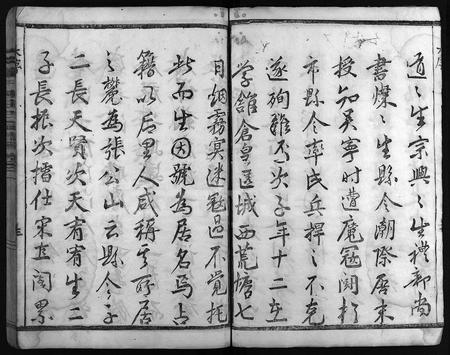 道〻生宗興〻〻生禮部尚
書懍〻生縣令潮際唐末
授知吳寧时遭魔寇闕於
市縣令率民兵捍〻不克
遂殉難焉次子年十二在
学舘倉皇医城西荒塘七
日烟霧冥迷寇過不覺托
此而生因號為居名焉占
籍以后里人咸稱其所居
之麓為張公山云縣令之子
二長天賢次天宥宥生二
子長振次擂仕宋直阁累